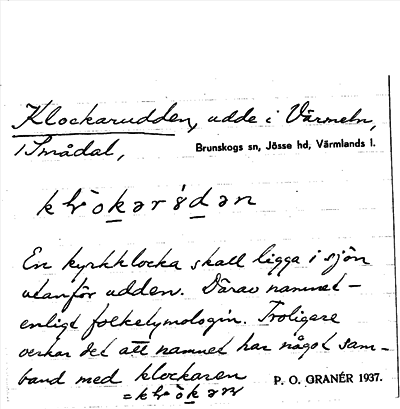 Klockarudden, udde i Värmeln,
i Smådal,
Brunskogs sn, Jösse hd, Värmlands l.
En kyrkklocka skall ligga i sjön
utanför udden. Därav namnet -
enligt folketymologin. Troligare
verkar det att namnet har något sam-
band med klockaren
P. O. GRANÉR 1937.